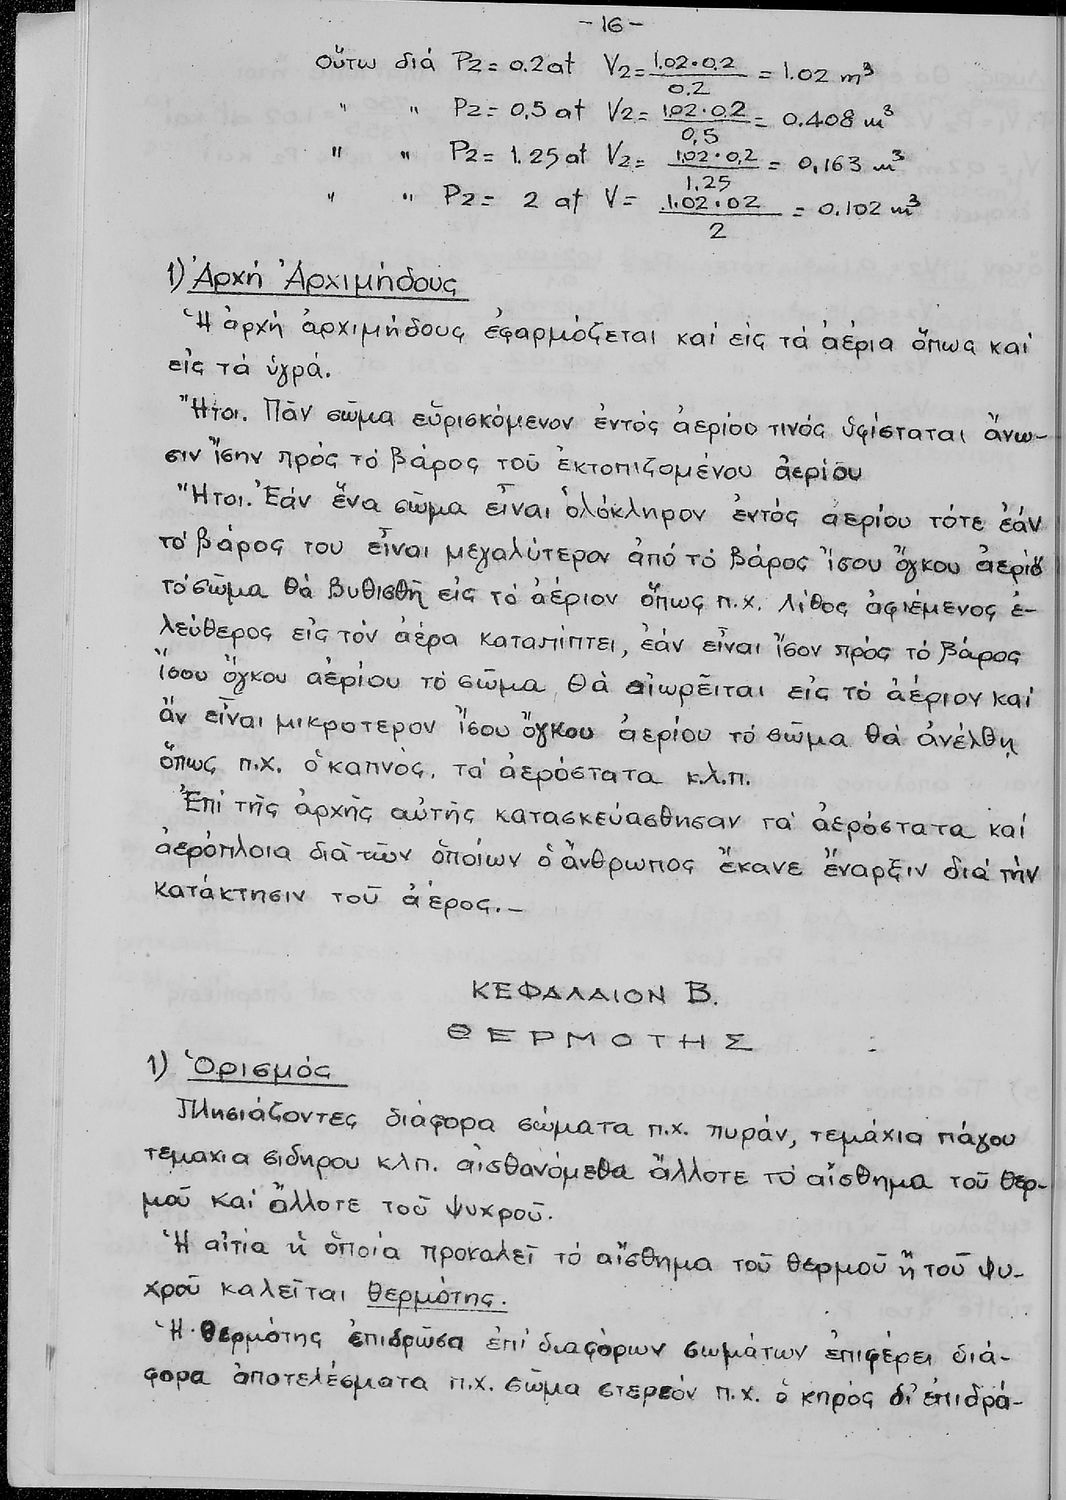 -16-
Οὕτω διά P2= 0.2at V2= 1.02·0.2 / 0.2 = 1.02 m³
" " P2= 0,5 at V2= 1.02·0.2 / 0,5 = 0.408 m³
" " P2= 1.25 at V2= 1.02·0,2 / 1.25 = 0,163 m³
" " P2= 2 at V= 1.02·02 / 2 = 0.102 m³
1) Ἀρχή Ἀρχιμήδους
Ἡ ἀρχή ἀρχιμήδους ἐφαρμόζεται καί εἰς τά ἀέρια ὅπως καί
εἰς τά ὑγρά.
Ἤτοι. Πᾶν σῶμα εὑρισκόμενον ἐντός ἀερίου τινός ὑφίσταται ἄνω-
σιν ἴσην πρός τό βάρος τοῦ ἐκτοπιζομένου ἀερίου
Ἤτοι. Ἐάν ἕνα σῶμα εἶναι ὁλόκληρον ἐντός αερίου τότε ἐάν
τό βάρος του εἶναι μεγαλύτερον ἀπό τό βάρος ἴσου ὄγκου ἀερίου
τό σῶμα θά βυθισθῆ εἰς τό ἀέριον ὅπως π.χ. λίθος ἀφιέμενος ἐ-
λεύθερος εἰς τόν ἀέρα καταπίπτει, ἐάν εἶναι ἴσον πρός τό βάρος
ἴσου ὄγκου ἀερίου τό σῶμα θά αἰωρεῖται εἰς τό ἀέριον καί
ἄν εἶναι μικροτερον ἴσου ὄγκου ἀερίου τό σῶμα θά ἀνέλθη
ὅπως π.χ. ὁ καπνός, τά ἀερόστατα κ.λ.π.
Ἐπί τῆς ἀρχῆς αὐτῆς κατασκεύασθησαν τά ἀερόστατα καί
ἀερόπλοια διά τῶν ὁποίων ὁ ἄνθρωπος ἔκανε ἔναρξιν διά τήν
κατάκτησιν τοῦ ἀέρος.-
ΚΕΦΑΛΑΙΟΝ Β.
ΘΕΡΜΟΤΗΣ
1) Ὁρισμός
Πλησιάζοντες διάφορα σώματα π.χ. πυράν, τεμάχια πάγου
τεμαχια σιδηρου κλπ. αἰσθανόμεθα ἄλλοτε τό αἴσθημα τοῦ θερ-
μοῦ καί ἄλλοτε τοῦ ψυχροῦ.
Ἡ αἰτία ἡ ὁποία προκαλεῖ τό αἴσθημα τοῦ θερμοῦ ἤ τοῦ ψυ-
χροῦ καλεῖται θερμότης.
Ἡ θερμότης ἐπιδρῶσα ἐπί διαφόρων σωμάτων ἐπιφέρει διά-
φορα ἀποτελέσματα π.χ. σῶμα στερεόν π.χ. ὁ κηρός δι' ἐπιδρά-